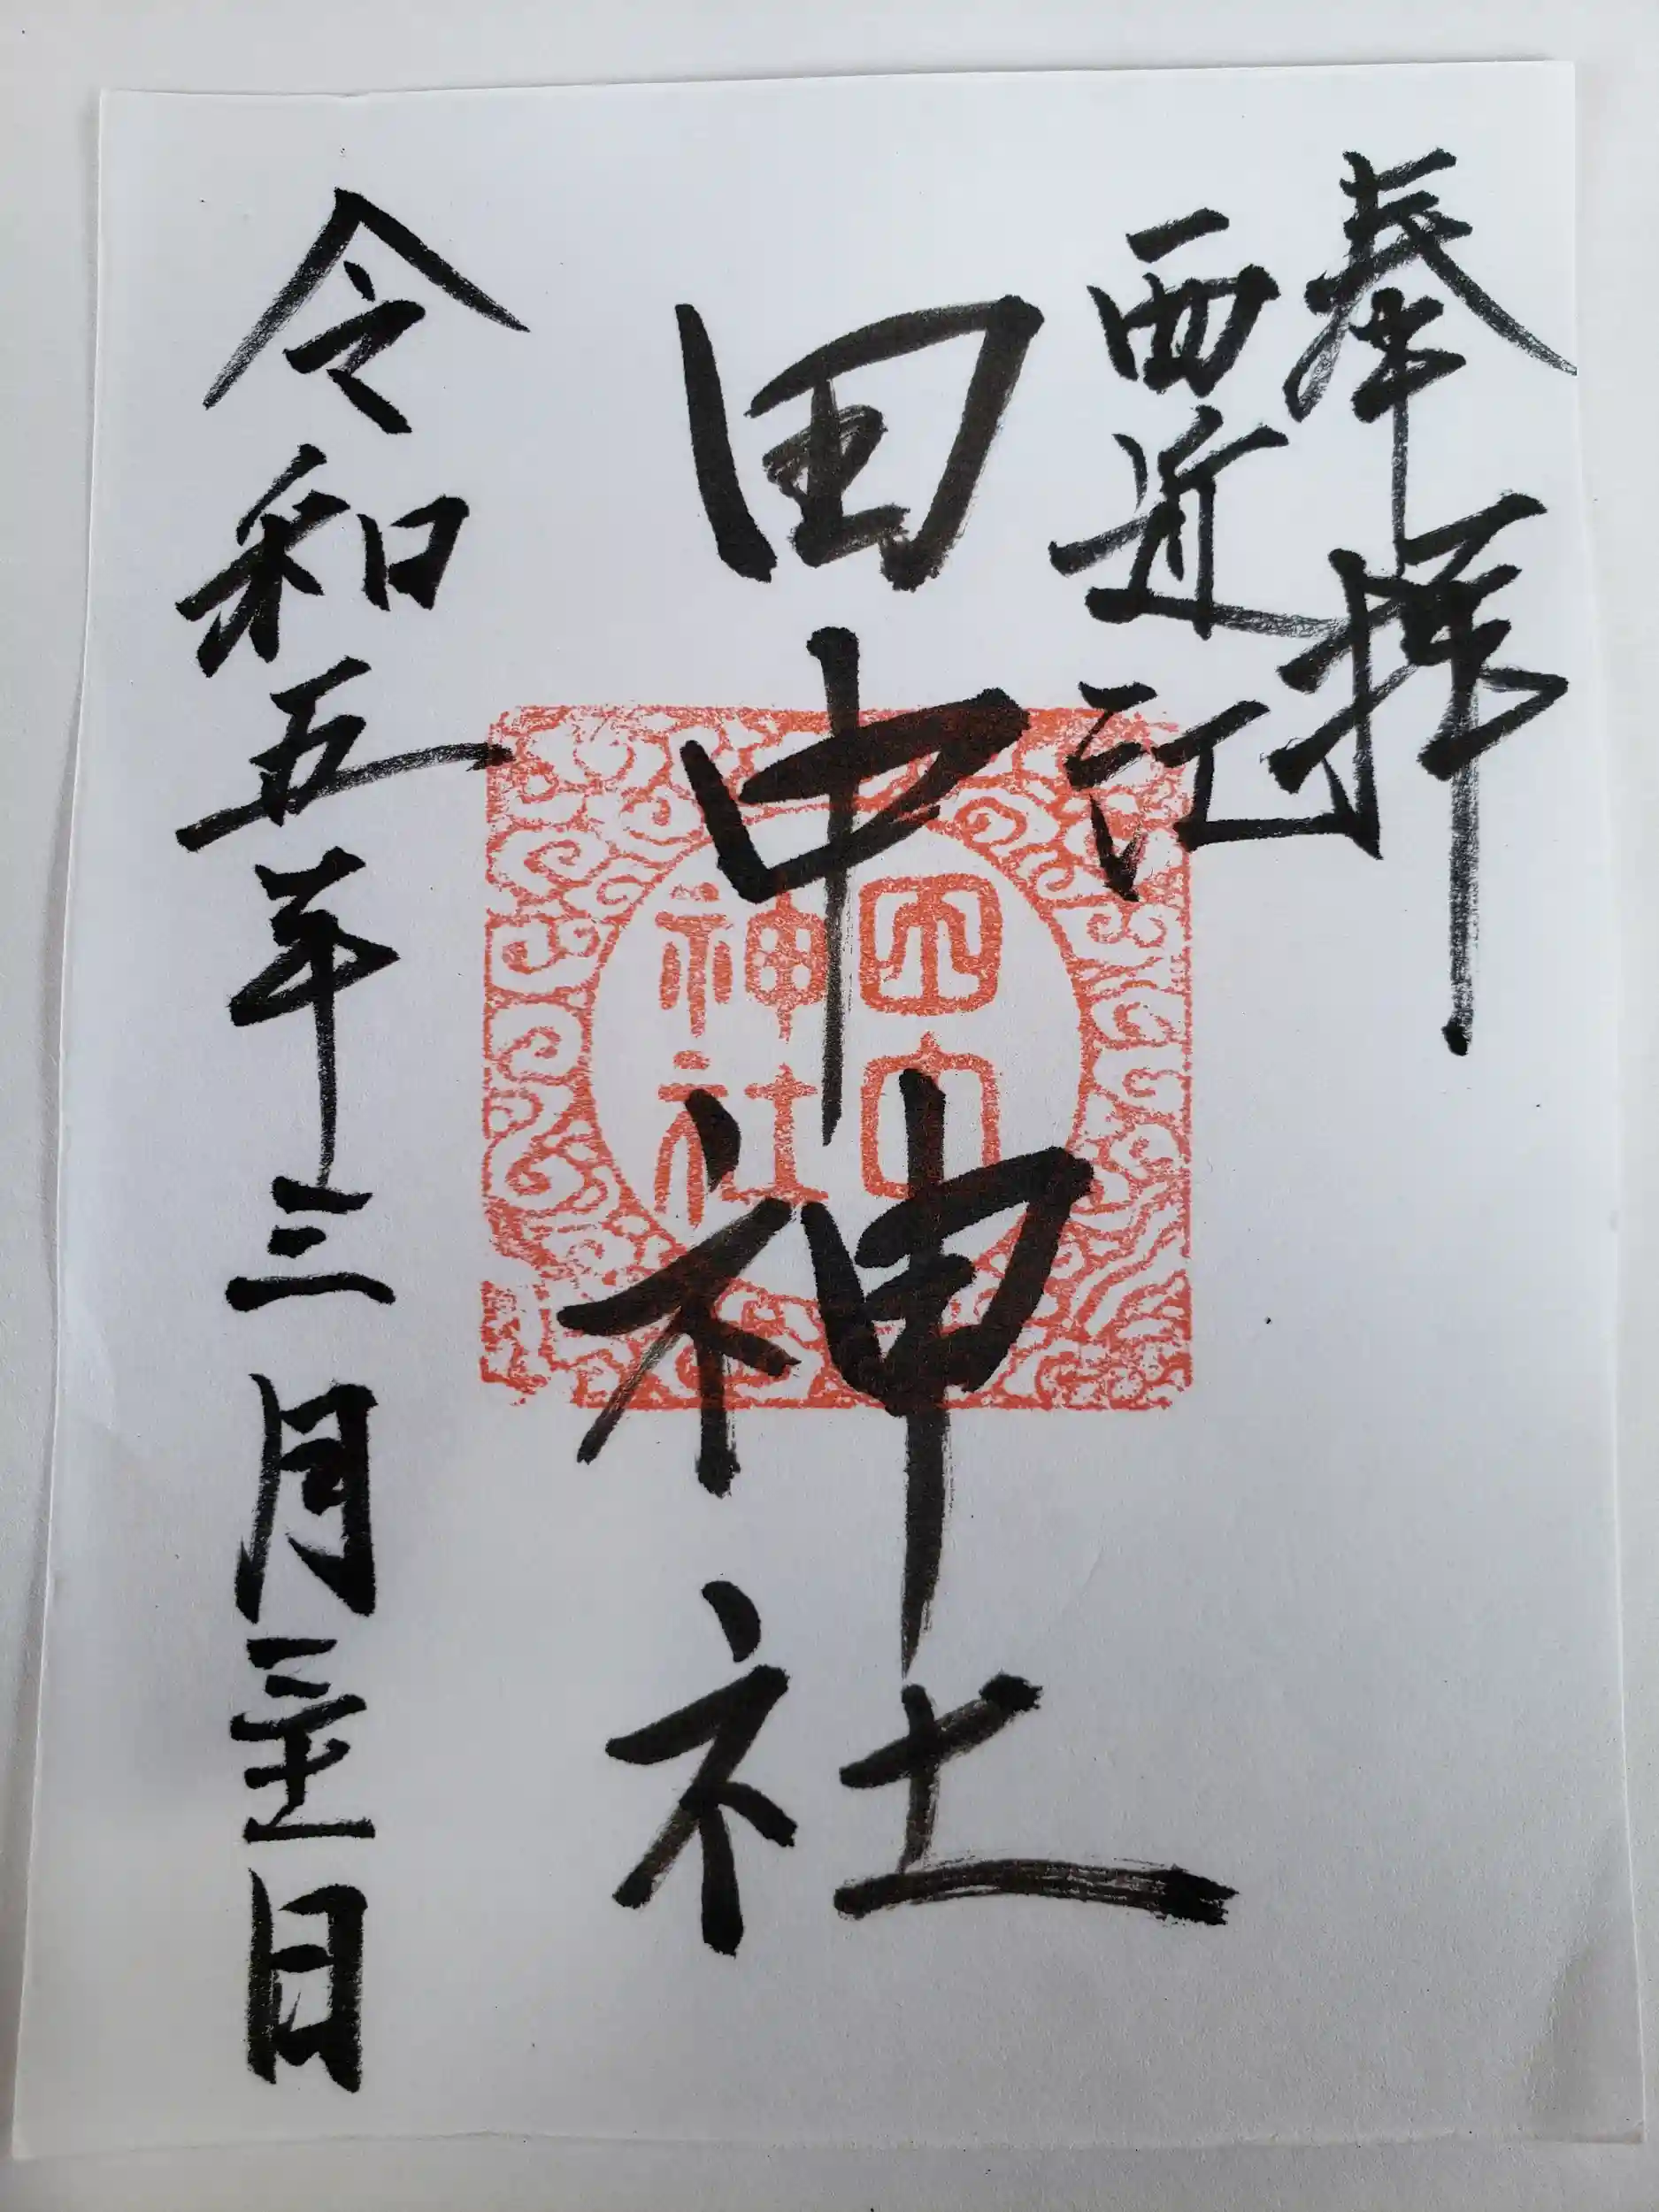 奉拝
西近江
田中神社
令和五年三月三十一日
田中
神社